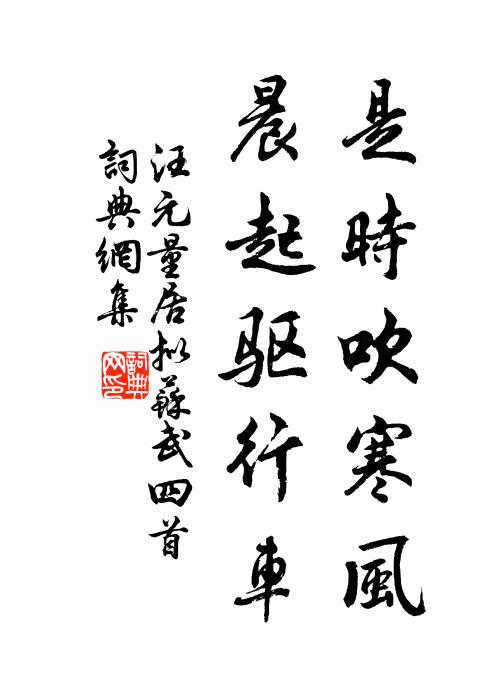 是時吹寒風
晨起驱行車
汪元量居拟蘇武四首
詞典網集
詞典网印